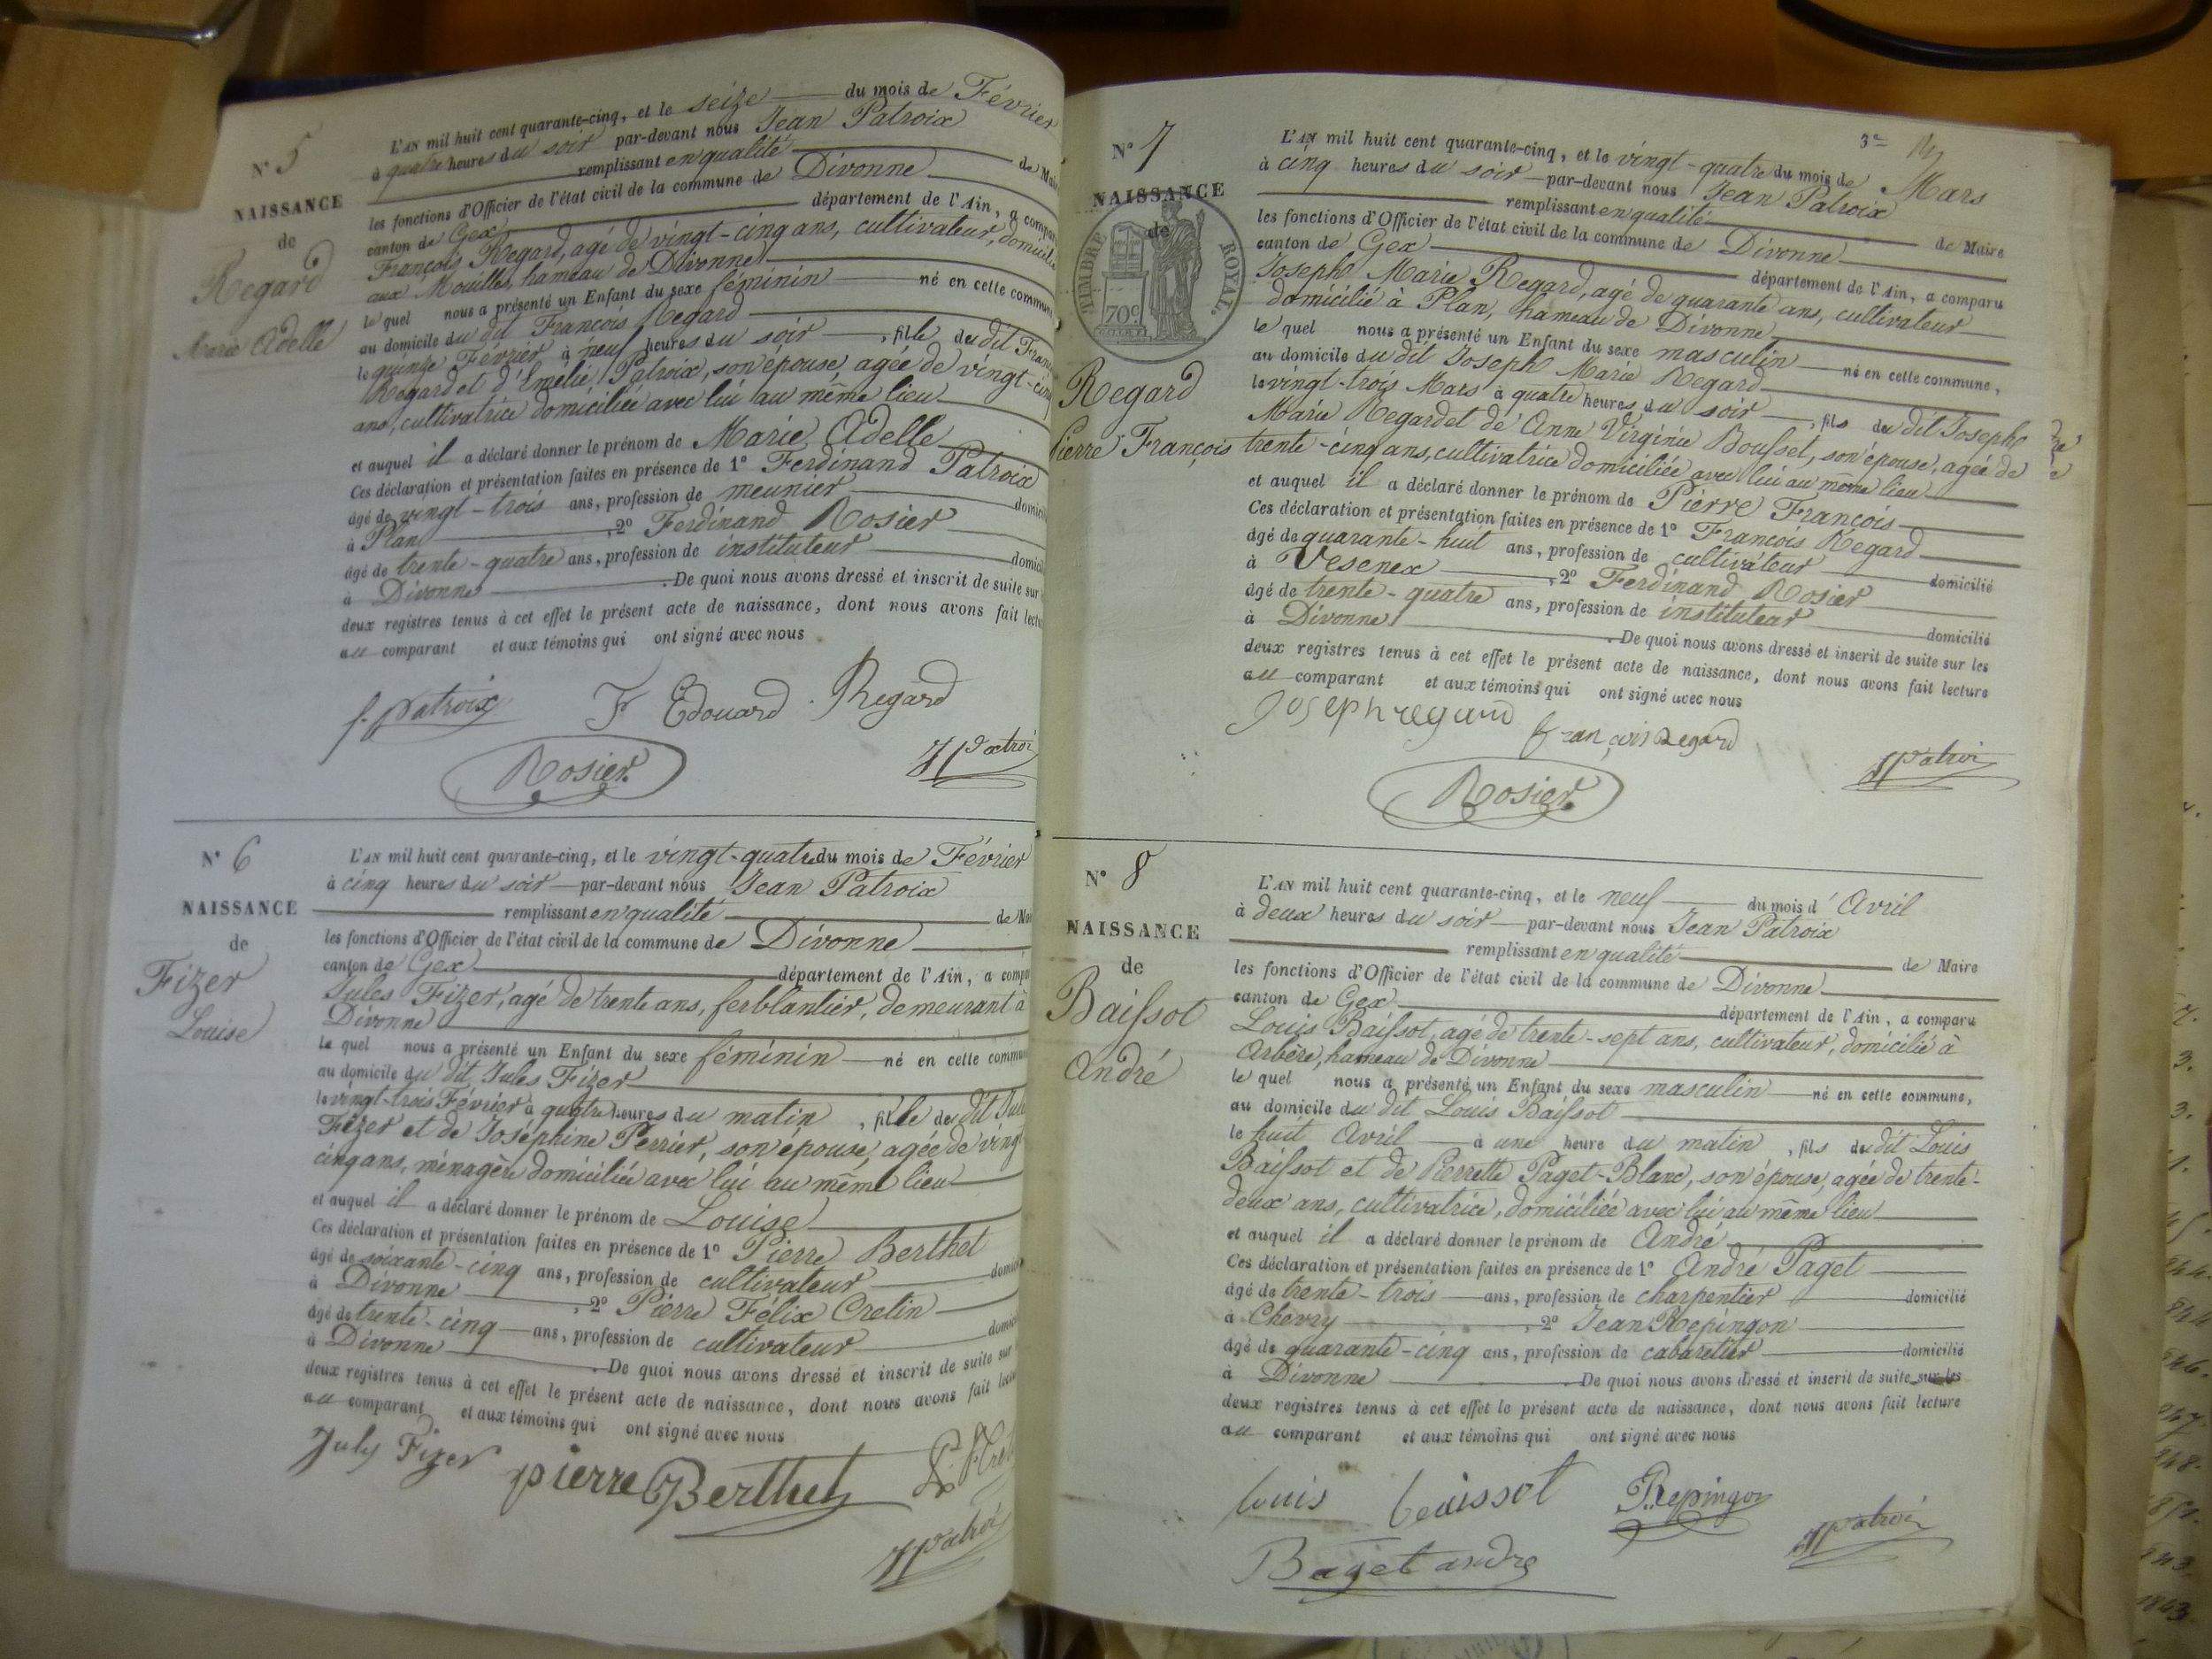 N° 5
NAISSANCE
de
Regard
Marie Adelle
L'AN mil huit cent quarante-cinq, et le seize du mois de Février
à quatre heures du soir par-devant nous Jean Patroix
remplissant en qualité de Mai
les fonctions d'Officier de l'état civil de la commune de Divonne
canton de Gex département de l'Ain, a compar
François Regard, agé de vingt-cinq ans, cultivateur, domicilié
aux Mouilles, hameau de Divonne
le quel nous a présenté un Enfant du sexe féminin né en cette commune
au domicile du dit François Regard
le quinze Février à neuf heures du soir , fille du dit Franç
Regard et d'Emélie Patroix, son épouse, agée de vingt-cinq
ans, cultivatrice domiciliée avec lui au même lieu
et auquel il a déclaré donner le prénom de Marie Adelle
Ces déclaration et présentation faites en présence de 1° Ferdinand Patroix
âgé de vingt-trois ans, profession de meunier domici
à Plan , 2° Ferdinand Rosier
âgé de trente-quatre ans, profession de instituteur domici
à Divonne . De quoi nous avons dressé et inscrit de suite sur
deux registres tenus à cet effet le présent acte de naissance, dont nous avons fait lectu
au comparant et aux témoins qui ont signé avec nous
f. patroix F Edouard Regard
Rosier Jpatroi
N° 6
NAISSANCE
de
Fizer
Louise
L'AN mil huit cent quarante-cinq, et le vingt-quatre du mois de Février
à cinq heures du soir par-devant nous Jean Patroix
remplissant en qualité de Mai
les fonctions d'Officier de l'état civil de la commune de Divonne
canton de Gex département de l'Ain, a compa
Jules Fizer, agé de trente ans, ferblantier, demeurant à
Divonne
le quel nous a présenté un Enfant du sexe féminin né en cette commun
au domicile du dit Jules Fizer
le vingt-trois Février à quatre heures du matin , fille du dit Jules
Fizer et de Joséphine Perrier, son épouse, agée de vingt
cinq ans, ménagère domiciliée avec lui au même lieu
et auquel il a déclaré donner le prénom de Louise
Ces déclaration et présentation faites en présence de 1° Pierre Berthet
âgé de soixante-cinq ans, profession de cultivateur domici
à Divonne , 2° Pierre Félix Cretin
âgé de trente-cinq ans, profession de cultivateur domici
à Divonne . De quoi nous avons dressé et inscrit de suite sur
deux registres tenus à cet effet le présent acte de naissance, dont nous avons fait lectu
au comparant et aux témoins qui ont signé avec nous
July Fizer pierre Berthet
Jpatroi
3e
N° 7
NAISSANCE
de
TIMBRE ROYAL
70c
Regard
Pierre François
L'AN mil huit cent quarante-cinq, et le vingt-quatre du mois de Mars
à cinq heures du soir par-devant nous Jean Patroix
remplissant en qualité de Maire
les fonctions d'Officier de l'état civil de la commune de Divonne
canton de Gex département de l'Ain, a comparu
Joseph Marie Regard, agé de quarante ans, cultivateur
domicilié à Plan, hameau de Divonne
le quel nous a présenté un Enfant du sexe masculin né en cette commune,
au domicile du dit Joseph Marie Regard
le vingt-trois Mars à quatre heures du soir , fils du dit Joseph
Marie Regard et de Anne Virginie Bousset, son épouse, agée de
trente-cinq ans, cultivatrice domiciliée avec lui au même lieu
et auquel il a déclaré donner le prénom de Pierre François
Ces déclaration et présentation faites en présence de 1° François Regard
âgé de quarante-huit ans, profession de cultivateur domicilié
à Vesenex , 2° Ferdinand Rosier
âgé de trente-quatre ans, profession de instituteur domicilié
à Divonne . De quoi nous avons dressé et inscrit de suite sur les
deux registres tenus à cet effet le présent acte de naissance, dont nous avons fait lecture
au comparant et aux témoins qui ont signé avec nous
Joseph regard françois Regard
Rosier Jpatroi
N° 8
NAISSANCE
de
Baissot
André
L'AN mil huit cent quarante-cinq, et le neuf du mois d'Avril
à deux heures du soir par-devant nous Jean Patroix
remplissant en qualité de Maire
les fonctions d'Officier de l'état civil de la commune de Divonne
canton de Gex département de l'Ain, a comparu
Louis Baissot, agé de trente-sept ans, cultivateur, domicilié à
Arbère, hameau de Divonne
le quel nous a présenté un Enfant du sexe masculin né en cette commune,
au domicile du dit Louis Baissot
le huit Avril à une heure du matin , fils du dit Louis
Baissot et de Pierrette Paget-Blanc, son épouse, agée de trente-
deux ans, cultivatrice, domiciliée avec lui au même lieu
et auquel il a déclaré donner le prénom de André
Ces déclaration et présentation faites en présence de 1° André Paget
âgé de trente-trois ans, profession de charpentier domicilié
à Chevry , 2° Jean Repingon
âgé de quarante-cinq ans, profession de cabaretier domicilié
à Divonne . De quoi nous avons dressé et inscrit de suite sur les
deux registres tenus à cet effet le présent acte de naissance, dont nous avons fait lecture
au comparant et aux témoins qui ont signé avec nous
louis beaissot Repingon
Baget andre Jpatroi